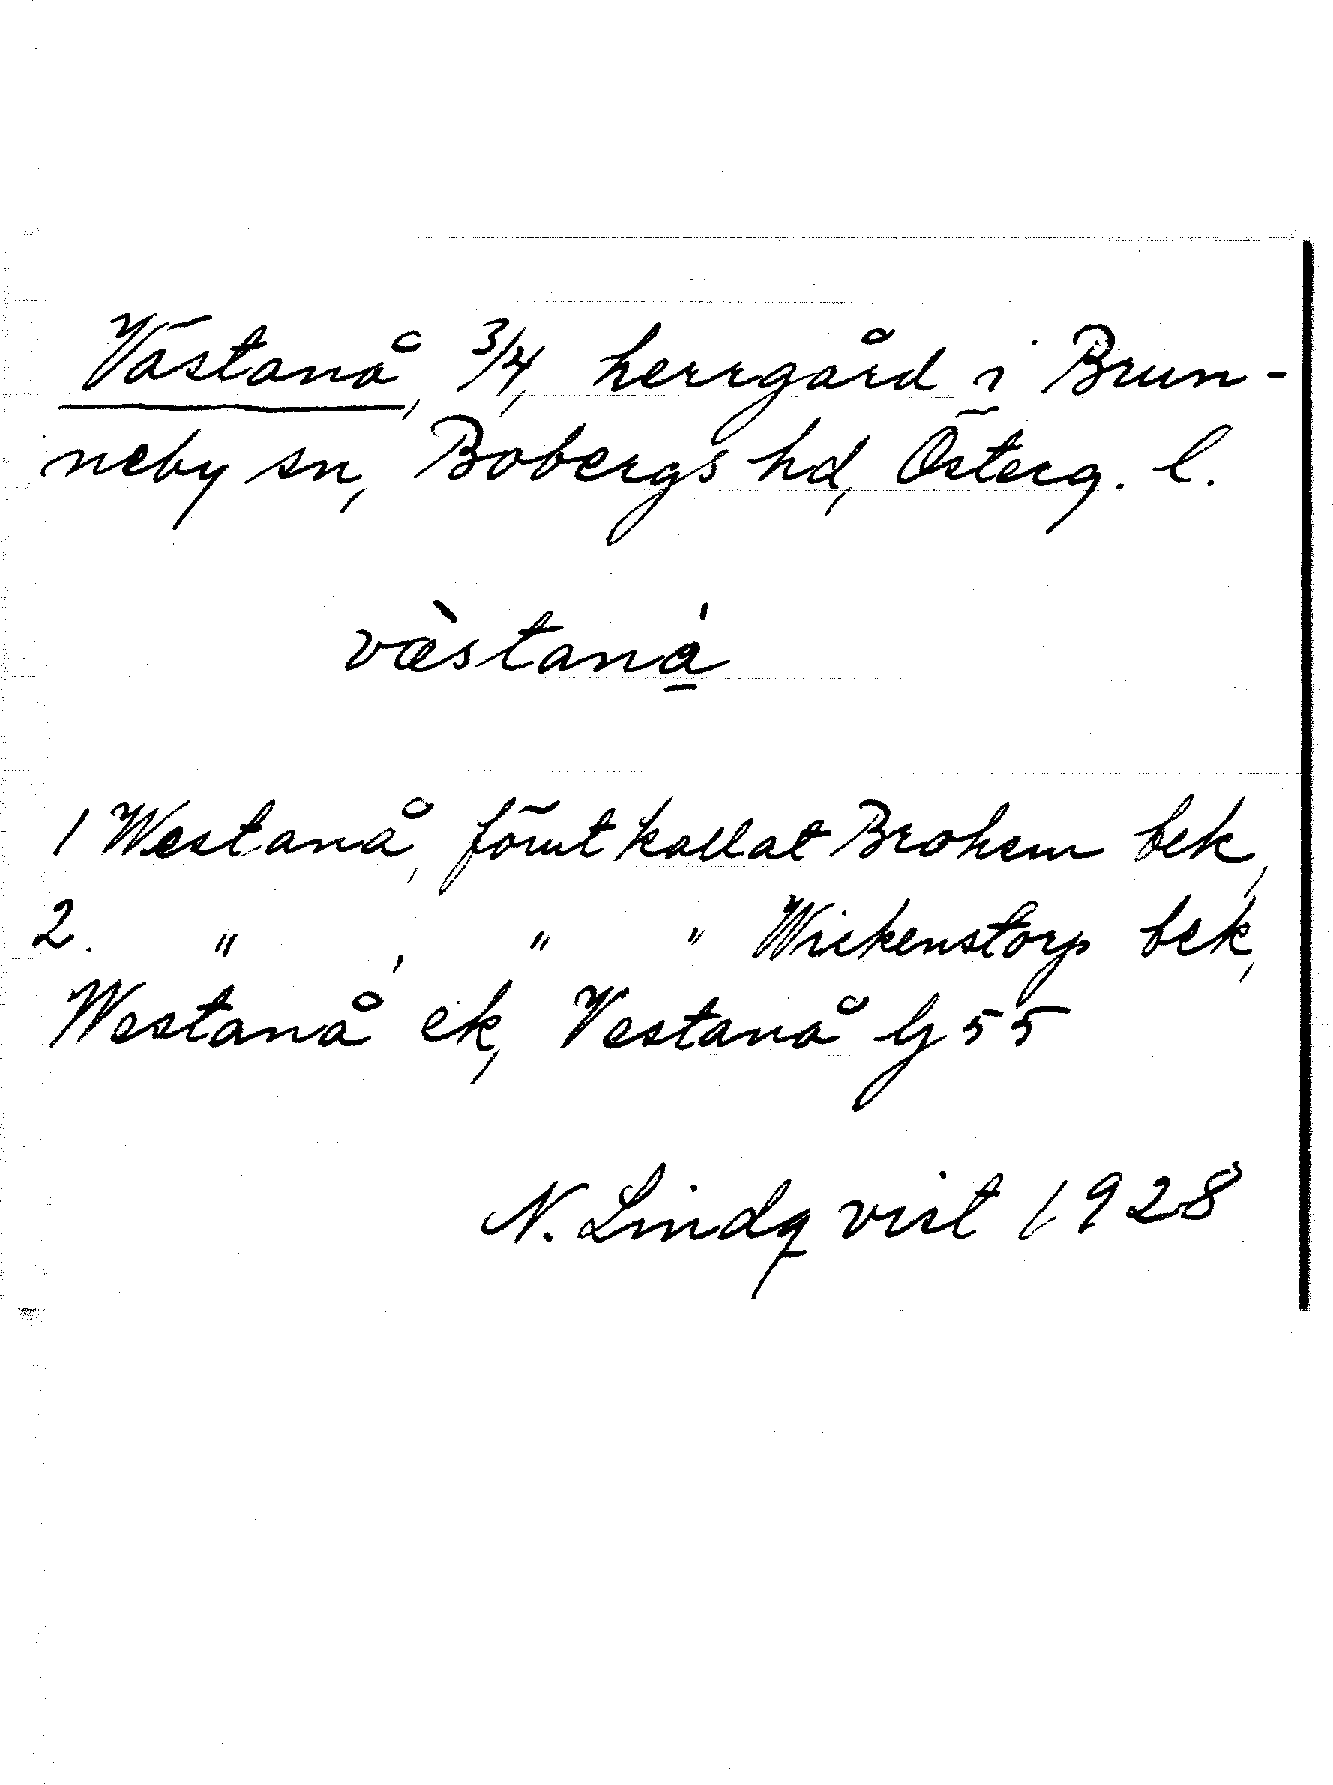 Västanå, 3/4, herrgård i Brun-
neby sn, Bobergs hd, Österg. l.
væ̀staná̱
1 Westanå, förut kallat Brohem bek,
2. " , " " Wickenstorp bek,
Westanå ek, Vestanå Gj 55
N. Lindqvist 1928